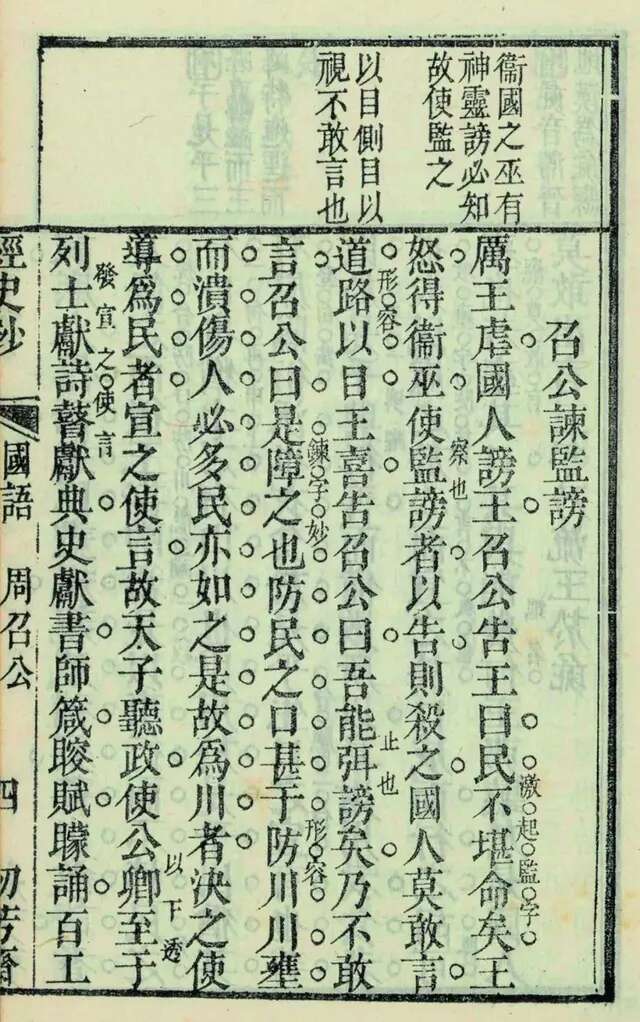 衞國之巫有
神靈謗必知
故使監之
以目側目以
視不敢言也
召公諫監謗
厲王虐國人謗王召公告王曰民不堪命矣王
激起監字
怒得衞巫使監謗者以告則殺之國人莫敢言
察也
道路以目王喜告召公曰吾能弭謗矣乃不敢
形容
止也
言召公曰是障之也防民之口甚于防川川壅
鍊字妙
形容
而潰傷人必多民亦如之是故爲川者決之使
導爲民者宣之使言故天子聽政使公卿至于
以下透
列士獻詩瞽獻典史獻書師箴瞍賦矇誦百工
發宣之使言
經史鈔
國語
周召公
四